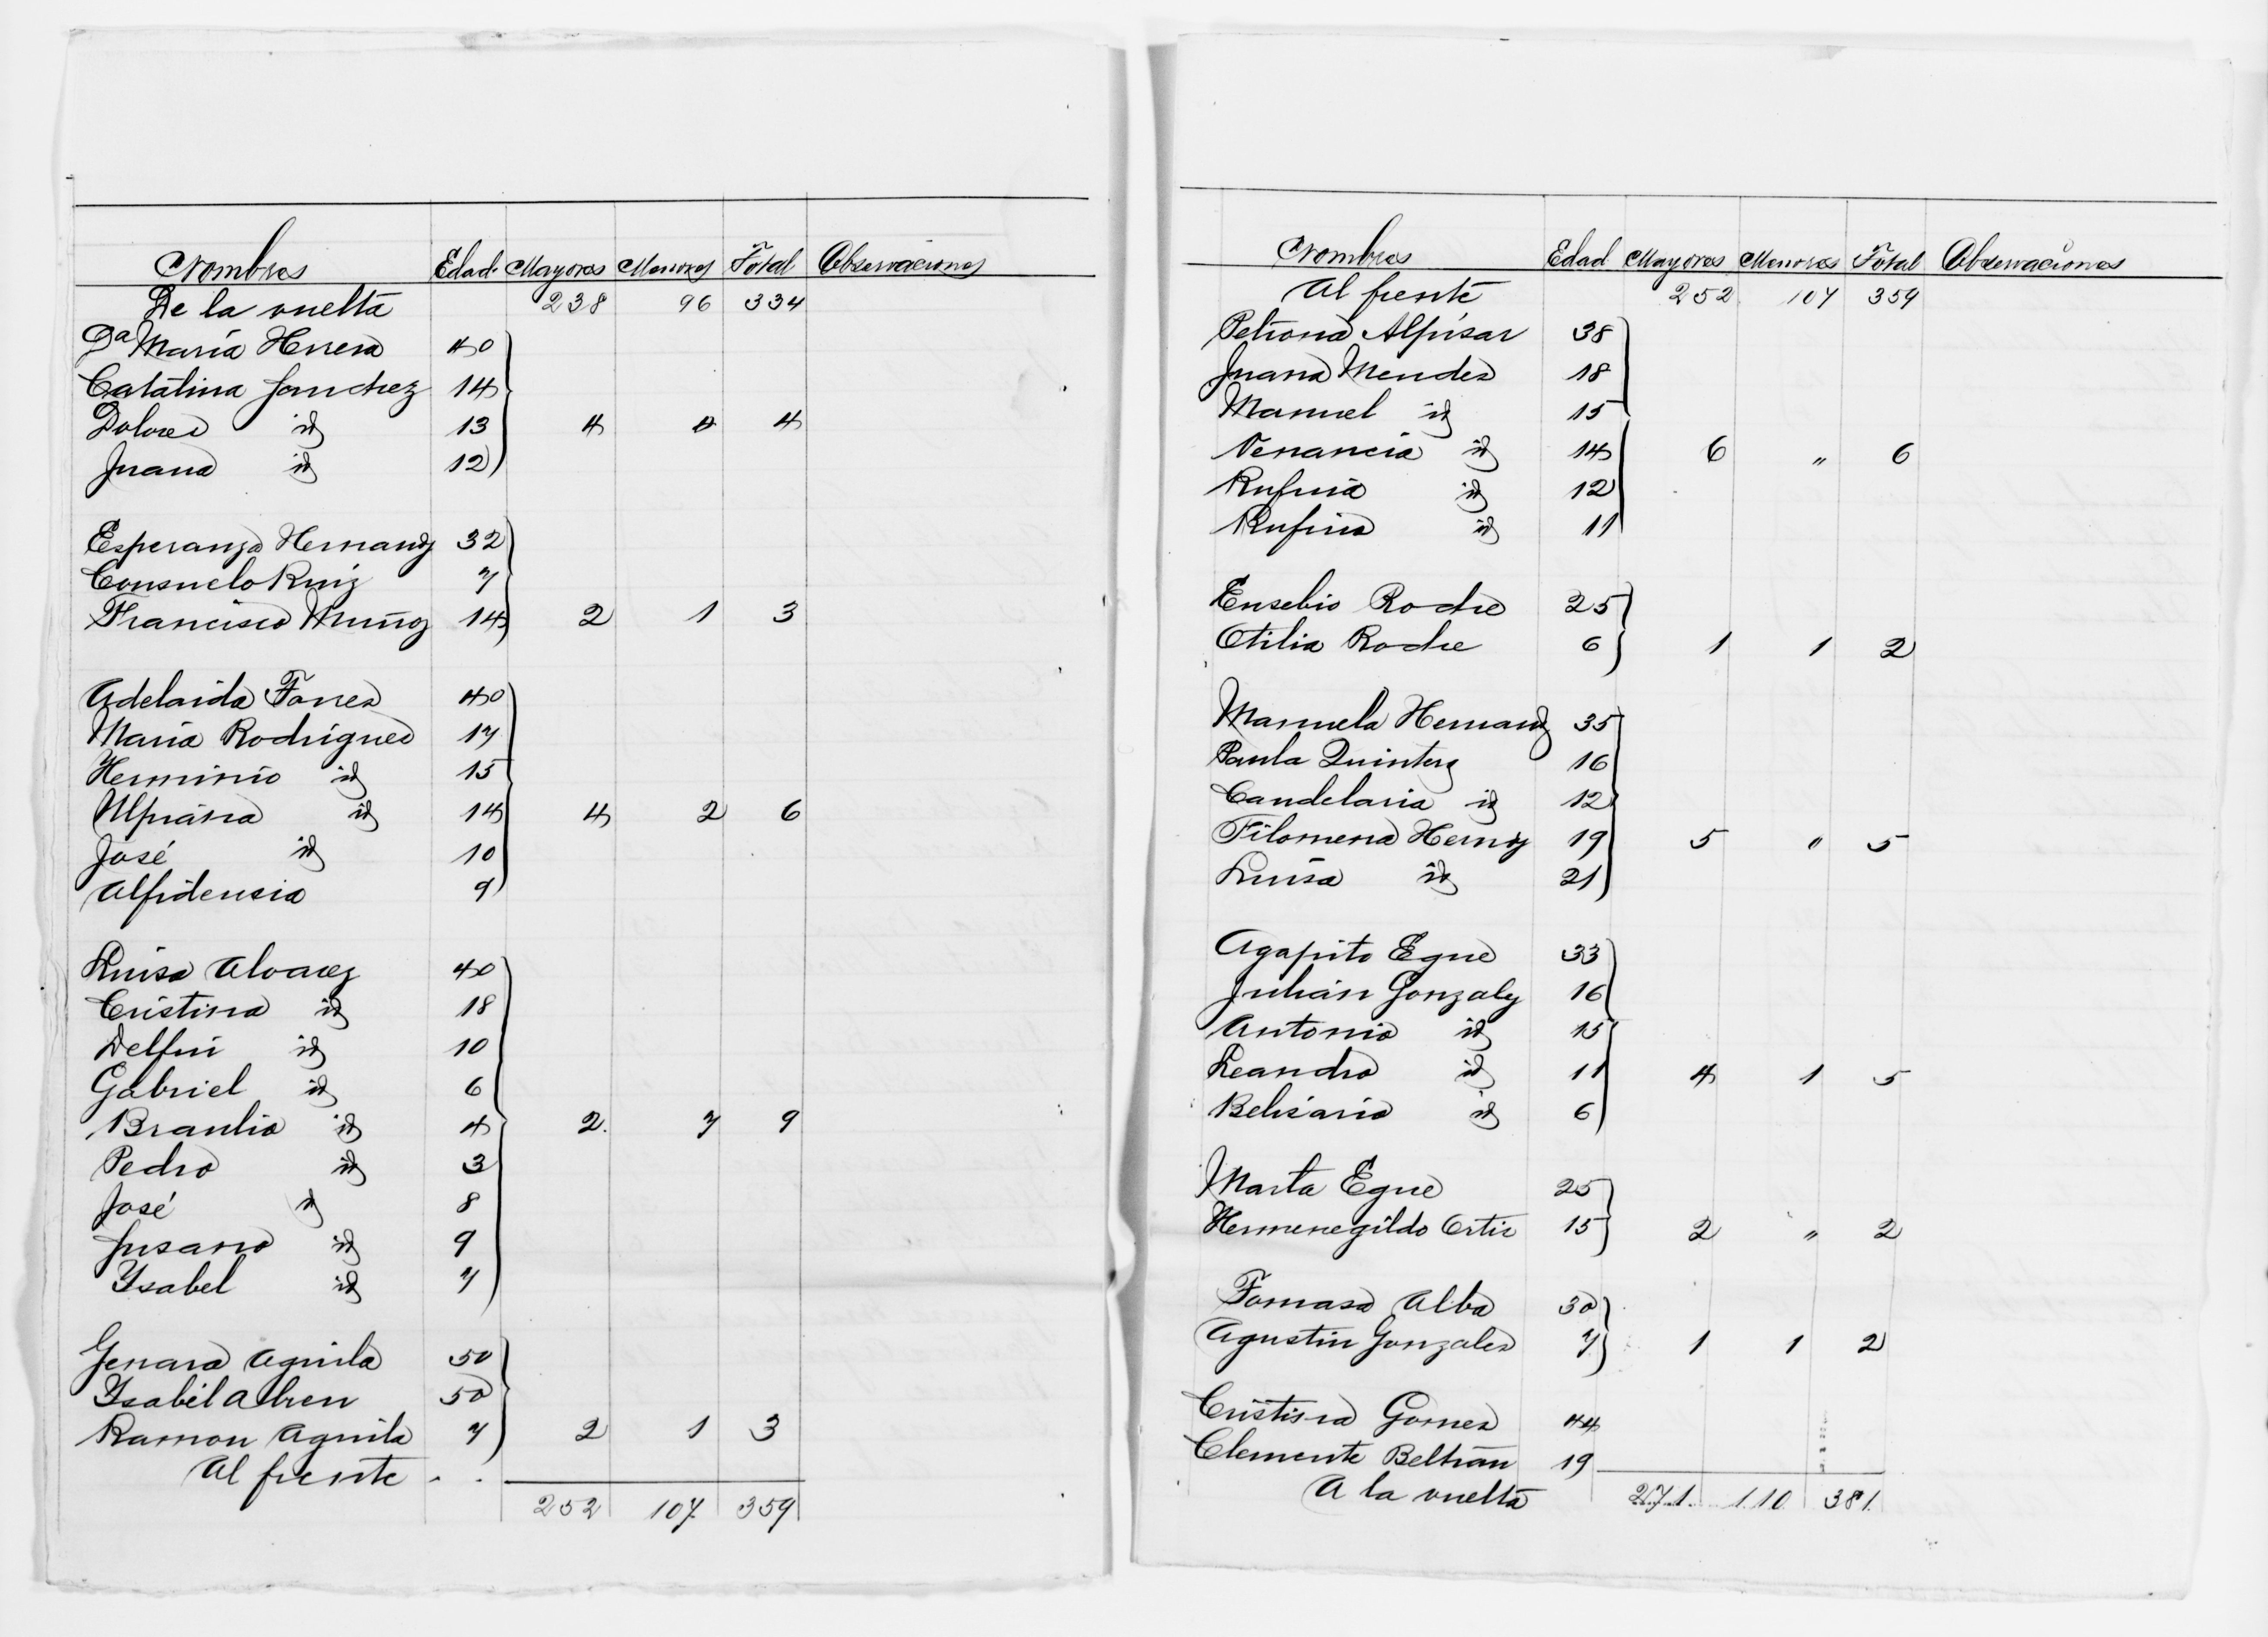 Nombres Edad. Mayores Menores Total Observaciones
De la vuelta 238 96 334
Da Maria Herrera 40
Catalina Sanchez 14
Dolores id 13 4 " 4
Juana id 12
Esperanza Hernandz 32
Consuelo Ruiz 7
Francisco Muñoz 14 2 1 3
Adelaida Torres 40
Maria Rodrigues 17
Herminio id 15
Ulpiana id 14 4 2 6
José id 10
Alfidencia 9
Luisa Alvarez 40
Cristina id 18
Delfin id 10
Gabriel id 6
Braulio id 4 2. 7 9
Pedro id 3
José id 8
Susano id 9
Ysabel id 7
Genara Aguila 50
Ysabel Abreu 50
Ramon Aguila 7 2 1 3
Al frente - -
252 107 359
Nombres Edad Mayores Menores Total Observaciones
Al frente 252 107 359
Petrona Alpisar 38
Juana Mendes 18
Manuel id 15
Venancia id 14 6 " 6
Rufina id 12
Rufino id 11
Eusebio Roche 25
Otilia Roche 6 1 1 2
Manuela Hernandz 35
Paula Quinterz 16
Candelaria id 12
Filomena Hernz 19 5 " 5
Luisa id 21
Agapito Egue 33
Julián Gonzalz 16
Antonio id 15
Leandro id 11 4 1 5
Belisario id 6
Marta Egue 25
Hermenegildo Ortis 15 2 " 2
Tomasa Alba 30
Agustin Gonzales 7 1 1 2
Cristina Gomes 44
Clemente Beltrán 19
A la vuelta 271. 110 381.